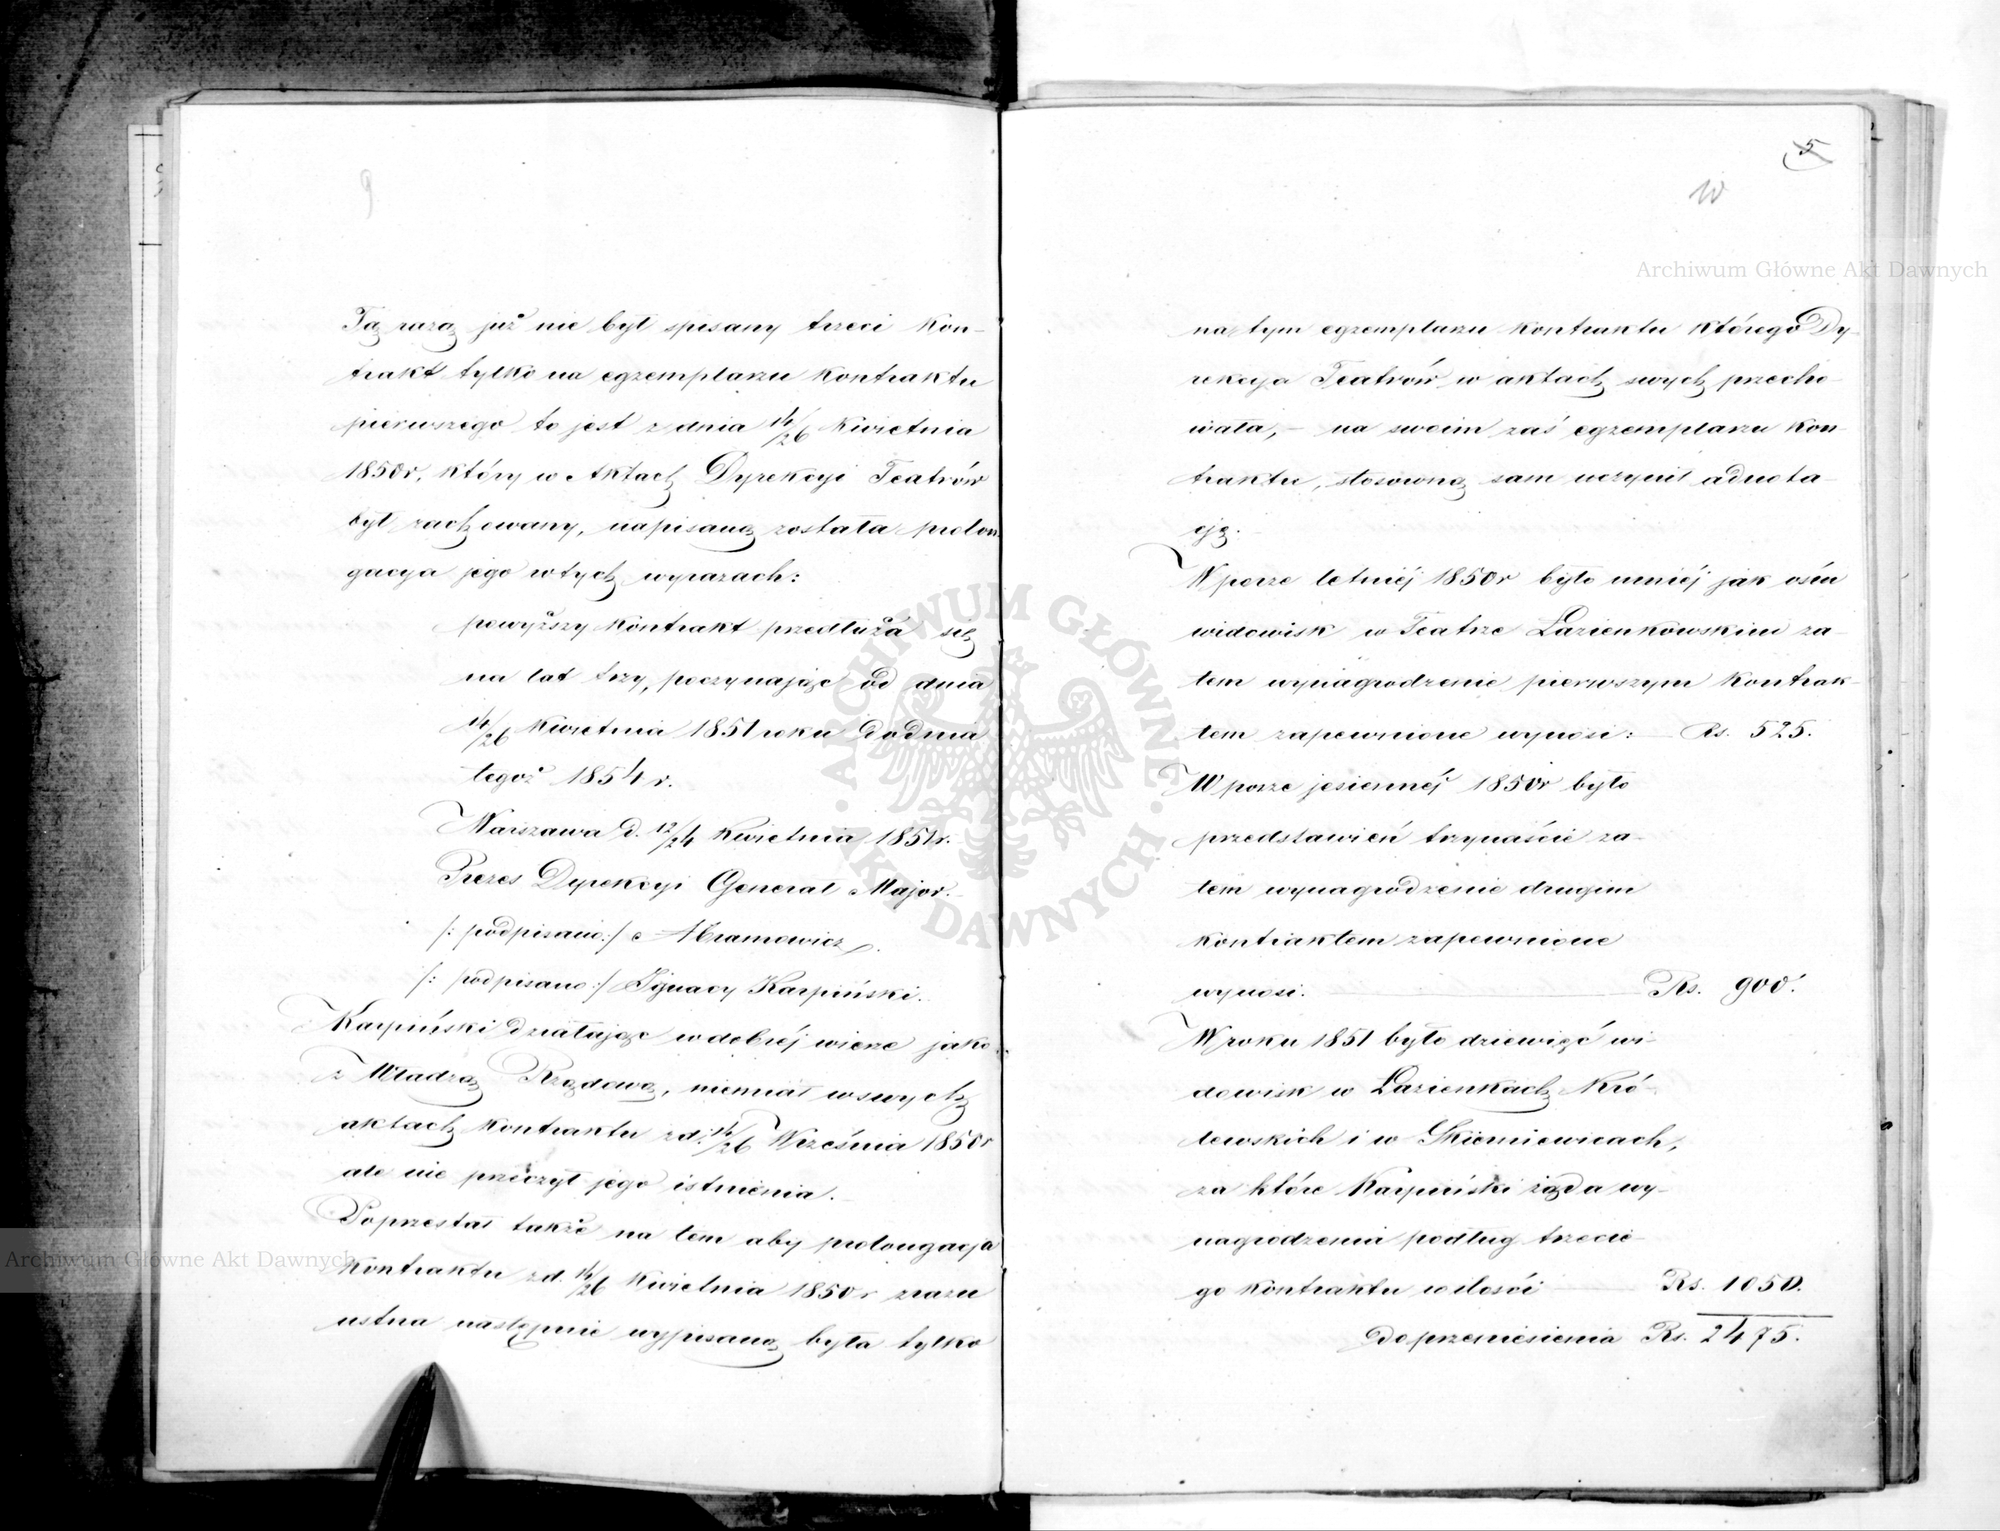 9
Tą razą już nie był spisany trzeci kon-
trakt tylko na egzemplarzu kontraktu
pierwszego to jest z dnia 14/26 Kwietnia
1850r, który w Aktach Dyrekcyi Teatrów
był zachowany, napisaną została prolon
gacya jego w tych wyrazach:
powyższy kontrakt przedłuża się
na lat trzy, poczynając od dnia
14/26 Kwietnia 1851 roku do dnia
tegoż 1854 r.
Warszawa d. 12/24 Kwietnia 1851r.
Prezes Dyrekcyi Generał Major.
/: podpisano :/ Abramowicz
/: podpisano :/ Ignacy Karpiński.
Karpiński działając w dobréj wierze jako
z Władzą Rządową, niemiał w swych
aktach kontraktu z d: 14/26 Września 1850r
ale nie przeczył jego istnienia.
Poprzestał także na tem aby prolongacja
kontraktu z d. 14/26 Kwietnia 1850r zrazu
ustna następnie wypisaną była tylko
5
10
na tym egzemplarzu kontraktu którego Dy-
rekcyja Teatrów w aktach swych przecho-
wała, - na swoim zaś egzemplarzu kon-
traktu, stosowną sam uczynił adnota-
cję.
W porze letniéj 1850r było mniéj jak ośm
widowisk w Teatrze Łazienkowskim za-
tem wynagrodzenie pierwszym kontrak-
tem zapewnione wynosi: Rs. 525.
W porze jesiennéj 1850r było
przedstawień trzynaście za-
tem wynagrodzenie drugim
kontraktem zapewnione
wynosi. Rs. 900.
W roku 1851 było dziewięć wi-
dowisk w Łazienkach Kró-
lewskich i w Skierniewicach,
za które Karpiński żąda wy-
nagrodzenia podług trzecie-
go kontraktu w ilości Rs. 1050.
Do przeniesienia Rs. 2475.
Archiwum Główne Akt Dawnych
Archiwum Główne Akt Dawnych
ARCHIWUM GŁÓWNE · AKT DAWNYCH ·